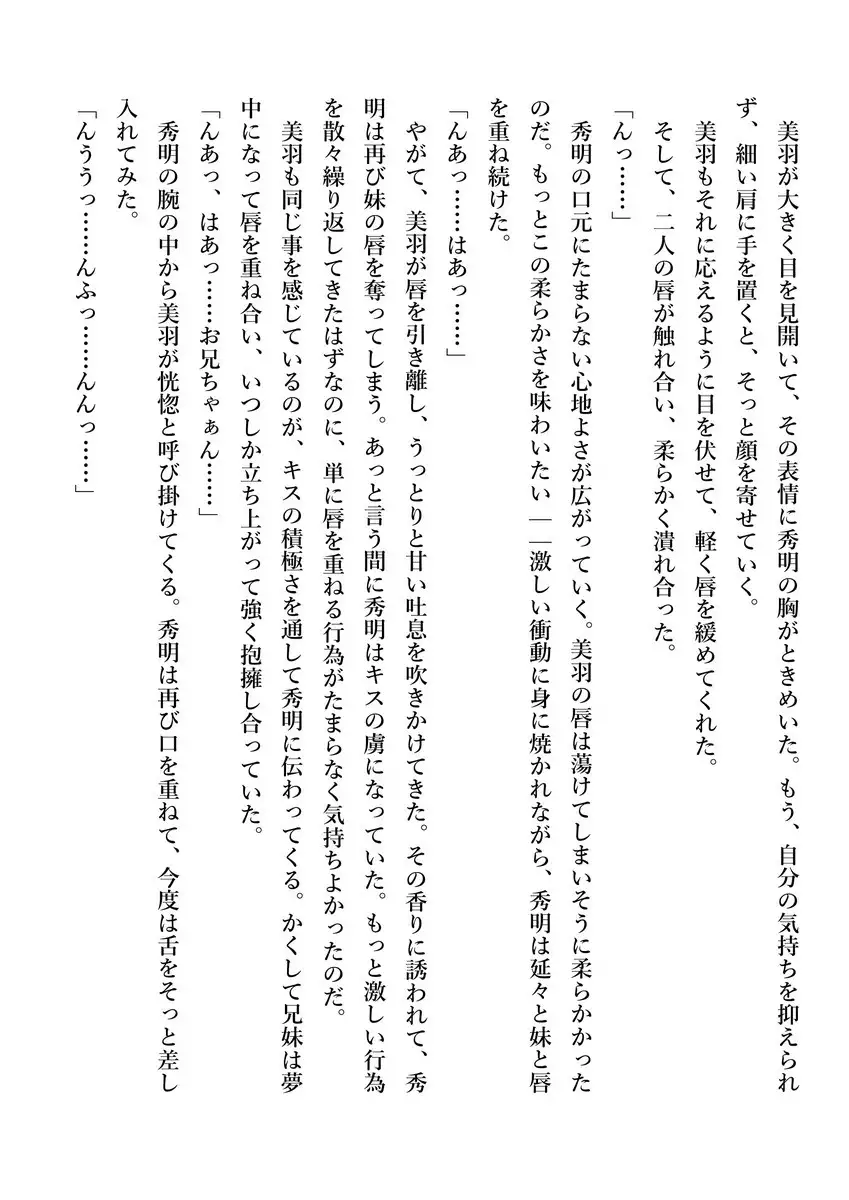 美羽が大きく目を見開いて、その表情に秀明の胸がときめいた。もう、自分の気持ちを抑えられ
ず、細い肩に手を置くと、そっと顔を寄せていく。
　美羽もそれに応えるように目を伏せて、軽く唇を緩めてくれた。
　そして、二人の唇が触れ合い、柔らかく潰れ合った。
「んっ……」
　秀明の口元にたまらない心地よさが広がっていく。美羽の唇は蕩けてしまいそうに柔らかかった
のだ。もっとこの柔らかさを味わいたい――激しい衝動に身に焼かれながら、秀明は延々と妹と唇
を重ね続けた。
「んあっ……はあっ……」
　やがて、美羽が唇を引き離し、うっとりと甘い吐息を吹きかけてきた。その香りに誘われて、秀
明は再び妹の唇を奪ってしまう。あっと言う間に秀明はキスの虜になっていた。もっと激しい行為
を散々繰り返してきたはずなのに、単に唇を重ねる行為がたまらなく気持ちよかったのだ。
　美羽も同じ事を感じているのが、キスの積極さを通して秀明に伝わってくる。かくして兄妹は夢
中になって唇を重ね合い、いつしか立ち上がって強く抱擁し合っていた。
「んあっ、はあっ……お兄ちゃぁん……」
　秀明の腕の中から美羽が恍惚と呼び掛けてくる。秀明は再び口を重ねて、今度は舌をそっと差し
入れてみた。
「んううっ……んふっ……んんっ……」